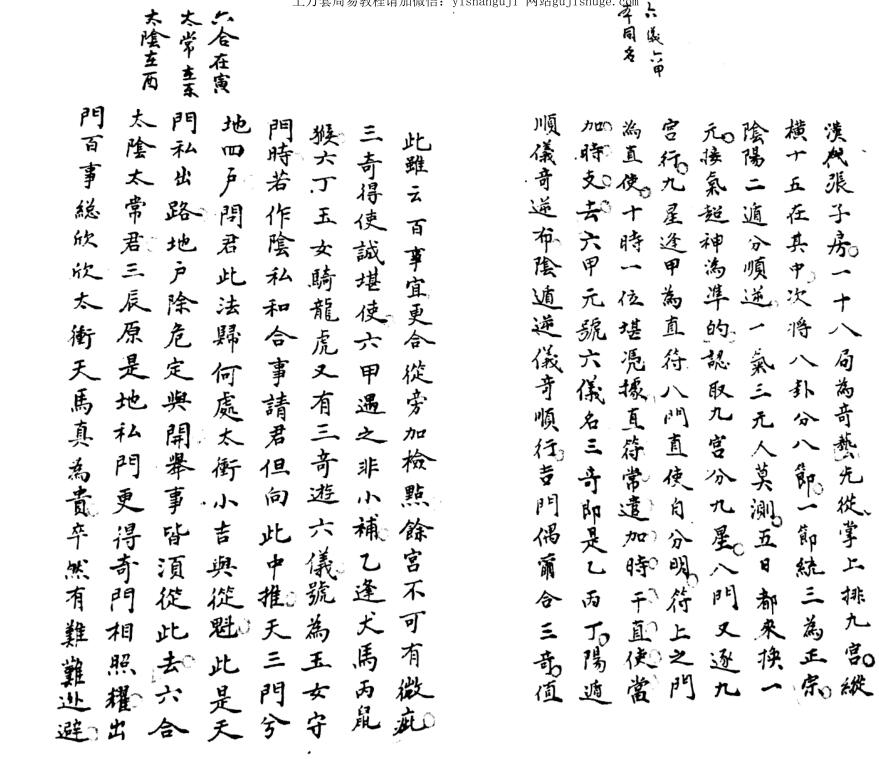 上万套周易教程请加微信：yishanguji 网站gujishuge.com
六儀六甲
本同名
漢代張子房。一十八局為奇藝先從掌上排九宮。縱
橫十五在其中。次將八卦分八節。一節統三為正宗。
陰陽二遁分順逆。一氣三元人莫測。五日都來換一
元。接氣超神為準的。認取九宮分九星。八門又逐九
宮行。九星逢甲為直符八門直使自分明。符上之門
為直使。十時一位堪憑據直符常遣加時干直使當
加時支去六甲元號六儀名三奇即是乙丙丁。陽遁
順儀奇逆布陰遁逆儀奇順行。吉門偶爾合三奇。值
此雖云百事宜更合從旁加檢點餘宮不可有微疵。
三奇得使誠堪使。六甲遇之非小補。乙逢犬馬丙鼠
猴。六丁玉女騎龍虎又有三奇遊六儀。號為玉女守
門時若作陰私和合事請君但向此中推。天三門兮
地四戶問君此法歸何處太衝小吉與從魁。此是天
門私出路。地戶除危定與開舉事皆須從此去。六合
太陰太常君。三辰原是地私門更得奇門相照耀。出
門百事總欣欣太衝天馬真為貴。卒然有難難逃避。
六合在寅
太常在未
太陰在酉